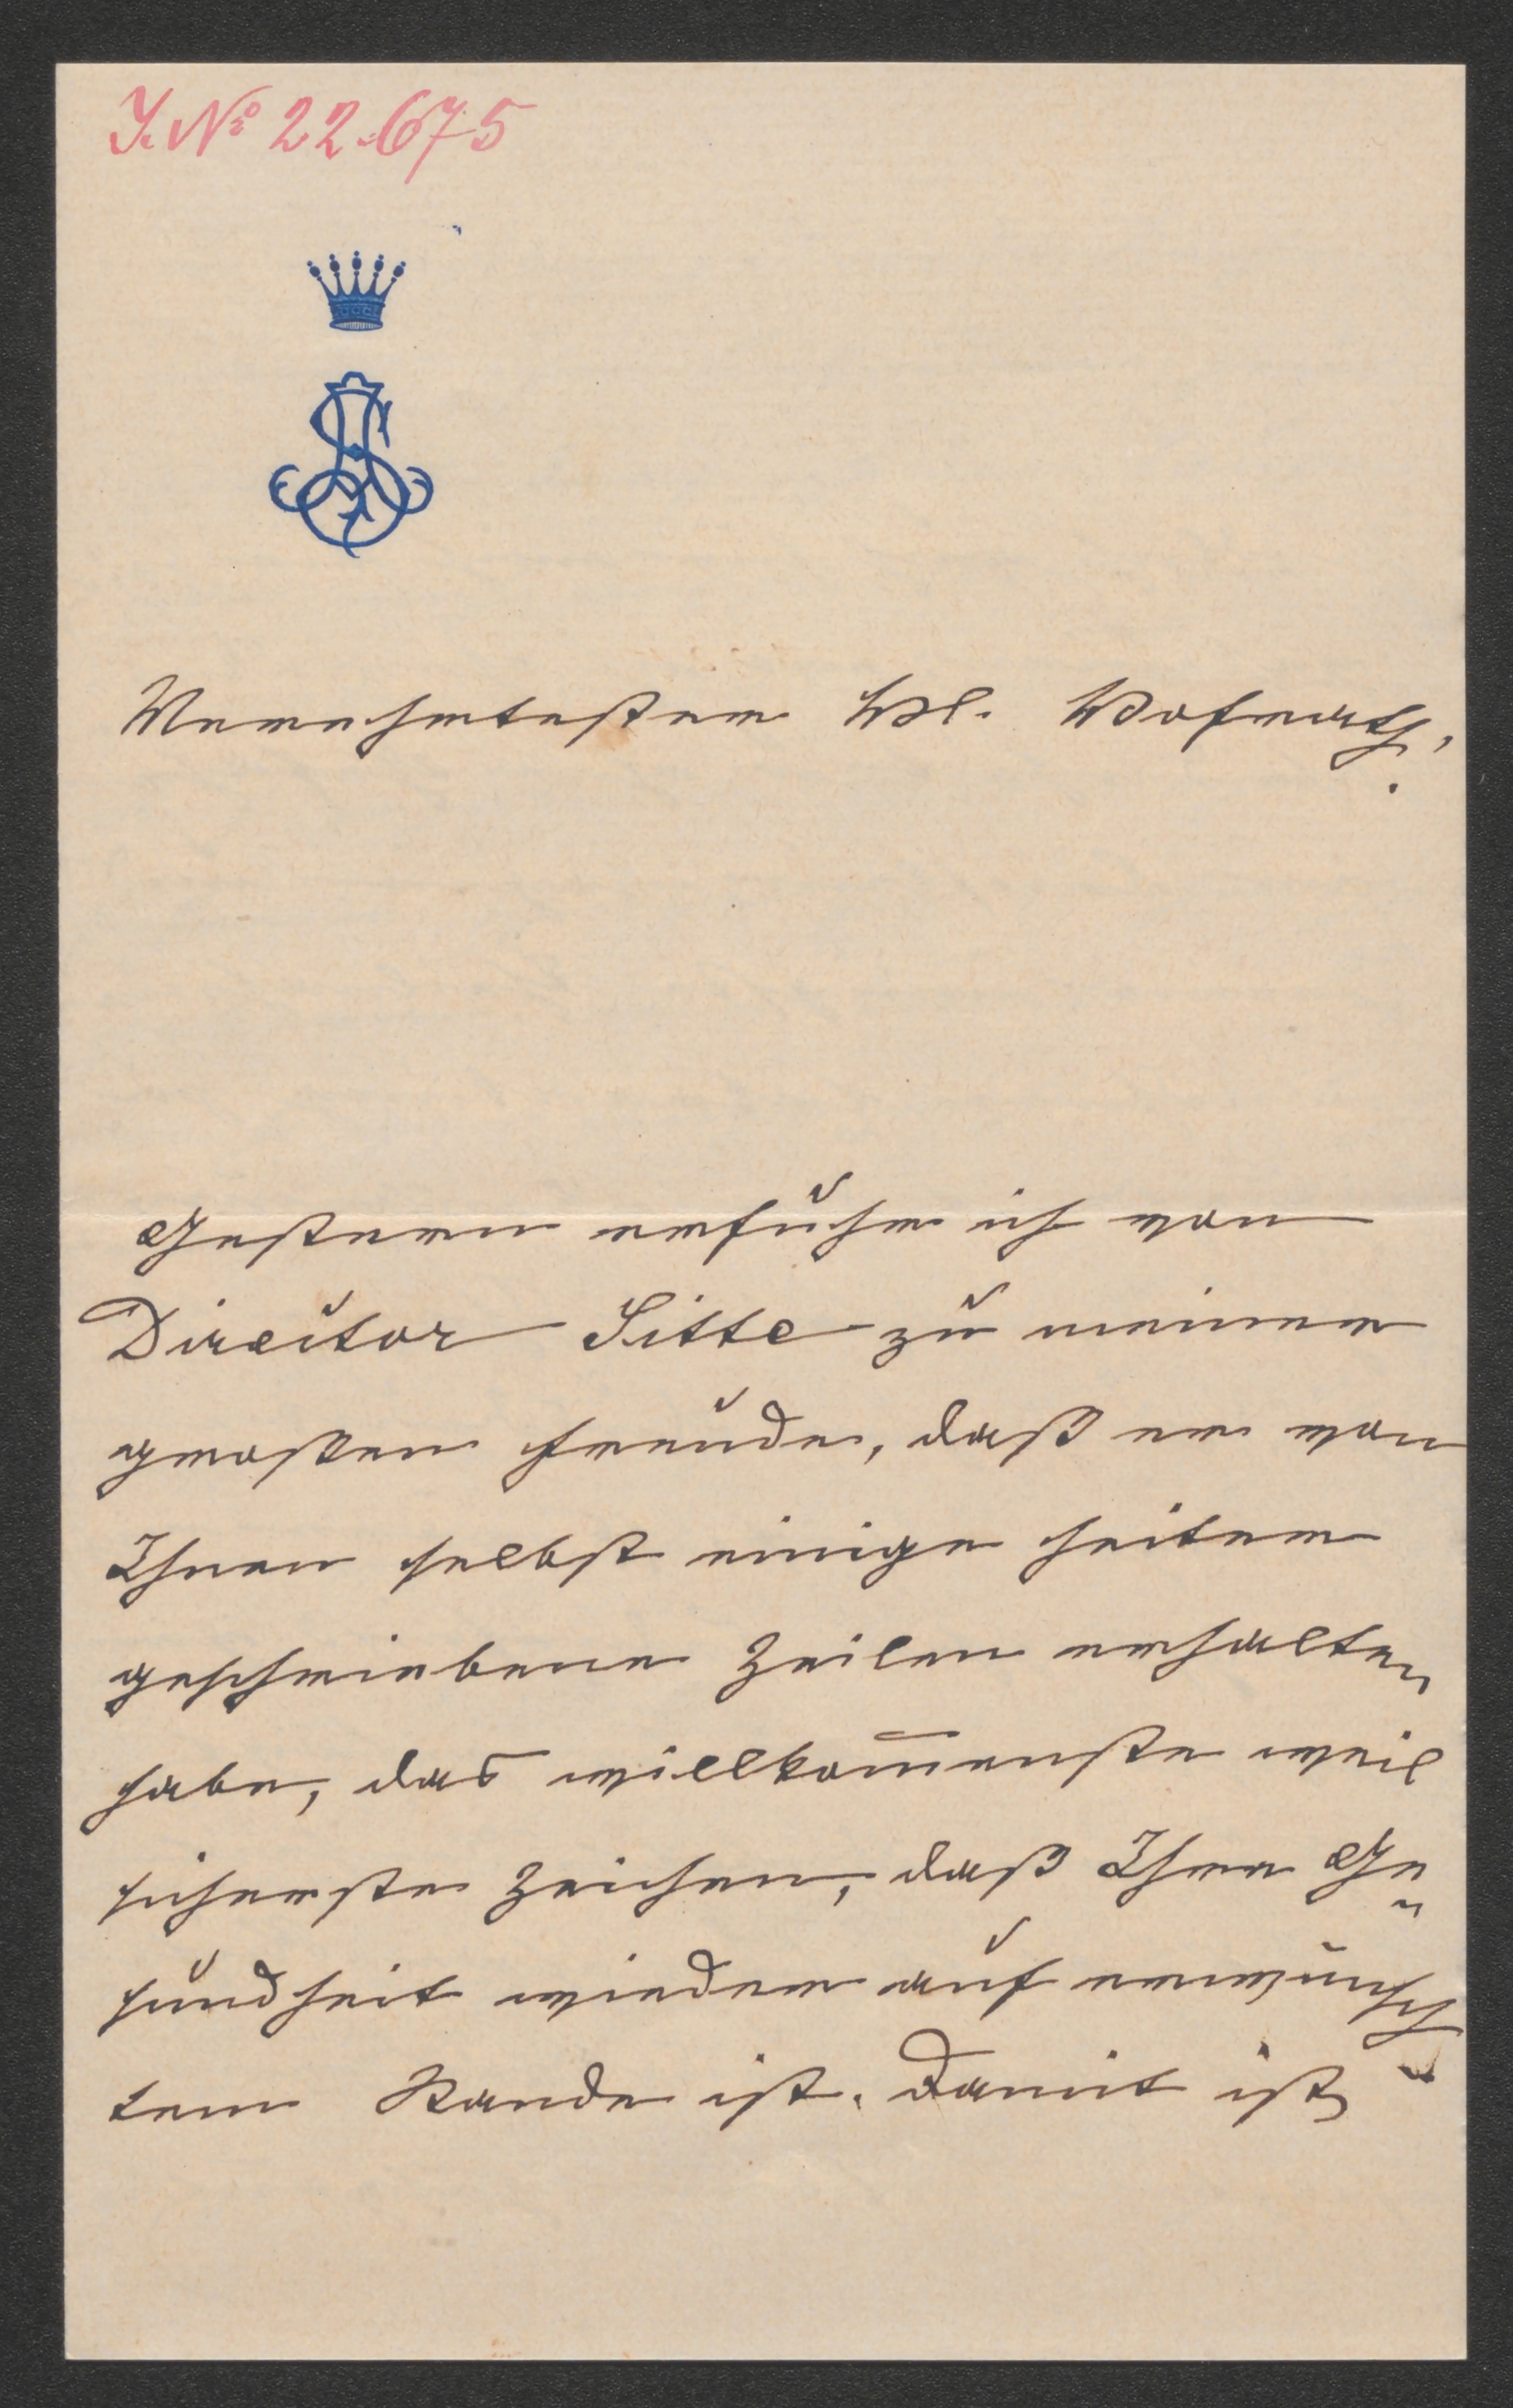 J. № 22.675
Verehrtester H. Hofrath,
Gestern erfuhr ich von
Director Sitte zu meiner
großen Freude, daß er von
Ihnen selbst einige heiter
geschriebene Zeilen erhalten
habe, das willkom̅enste weil
sicherste Zeichen, daß Ihre Ge
sundheit wieder auf erwünsch
tem Stande ist. Damit ist